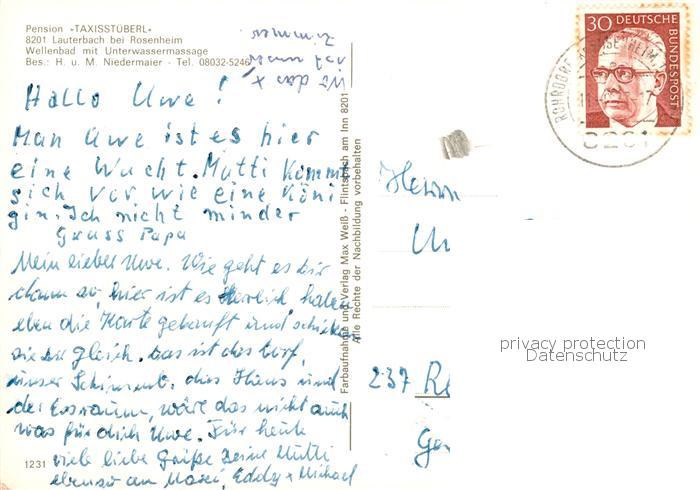 Pension »TAXISSTÜBERL«
8201 Lauterbach bei Rosenheim
Wellenbad mit Unterwassermassage
Bes.: H. u. M. Niedermaier · Tel. 08032-5246
wo das x
ist unser
Zimmer
Hallo Uwe!
Man Uwe ist es hier
eine Wucht. Mutti kommt
sich vor wie eine Köni
gin. Ich nicht minder
Gruss Papa
Mein lieber Uwe. Wie geht es dir
denn so, hier ist es herrlich, haben
eben die Karte gekauft und schicken
sie gleich. Das ist das Dorf,
unser Schwimmb. das Haus und
der Essraum, wäre das nicht auch
was für dich Uwe. Für heute
viele liebe Grüße Deine Mutti
ebenso an Eddy + Michael
1231
Farbaufnahme und Verlag Max Weiß · Flintsbach am Inn 8201
Alle Rechte der Nachbildung vorbehalten
30 DEUTSCHE
BUNDESPOST
ROHRDORF
8201
Herrn
237
privacy protection
Datenschutz